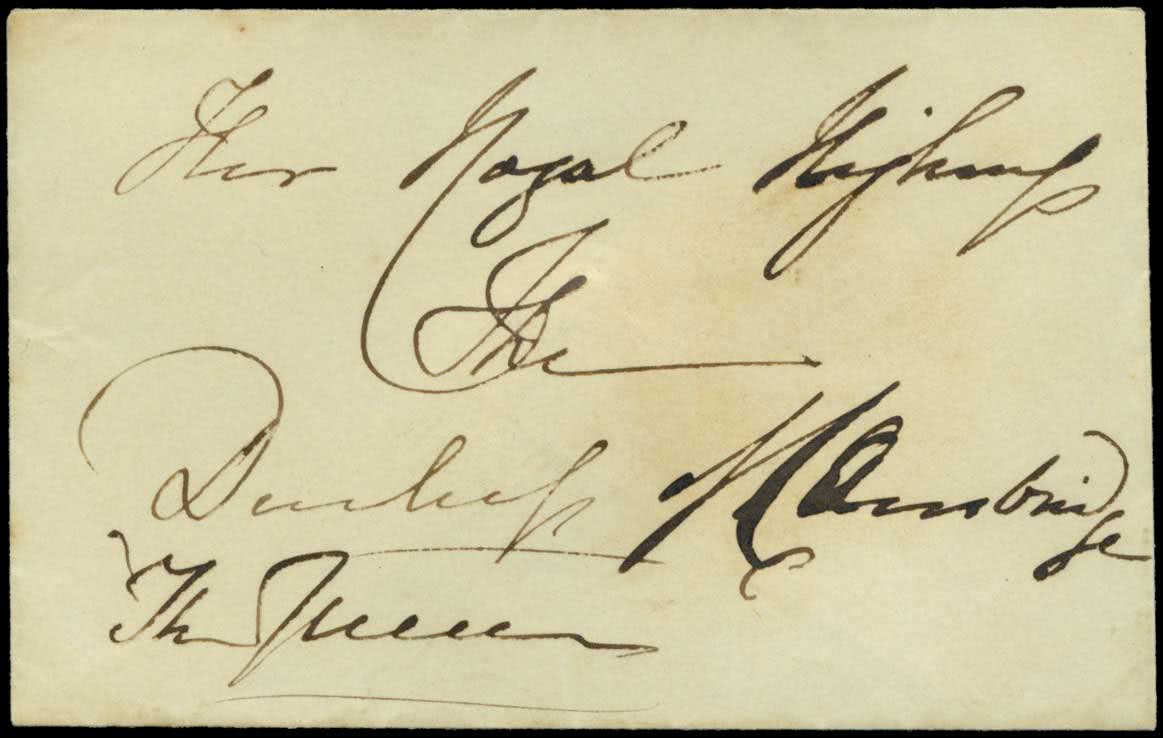 Her Royal Highness
The
Duchess of Cambridge
The Queen